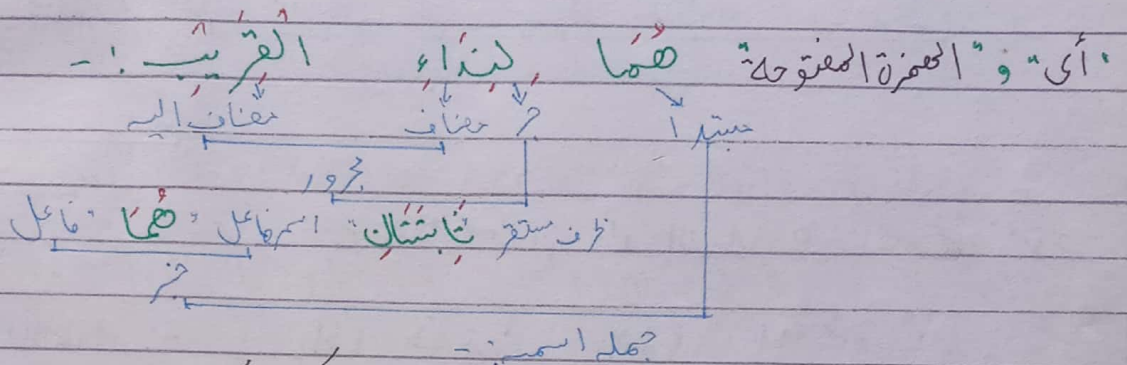 "أى" و "الهمزة المفتوحة" هُمَا لِنِدَاءِ الْقَرِيْبِ :-
مبتدا جر مضاف مضاف اليه
مجرور
ظرف مستقر ثَابِتَتَانِ" اسم فاعل "هُمَا" فاعل
خبر
جمله اسميه :-